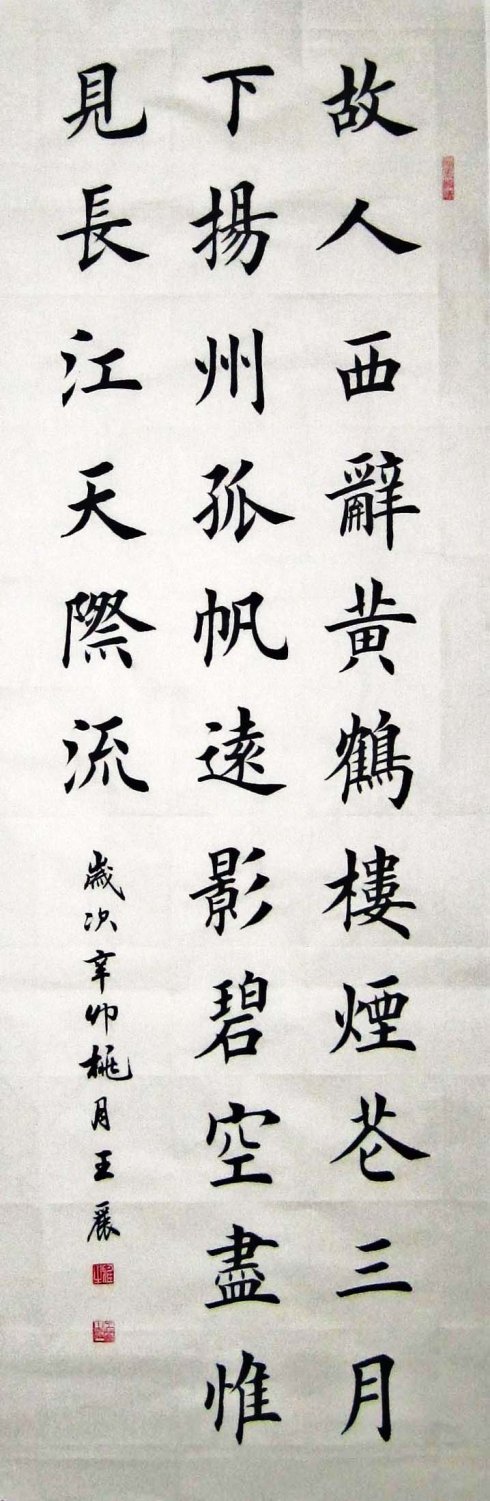 故人西辭黄鶴樓煙芲三月
下揚州孤帆遠影碧空盡惟
見長江天際流
歲次辛卯桃月王